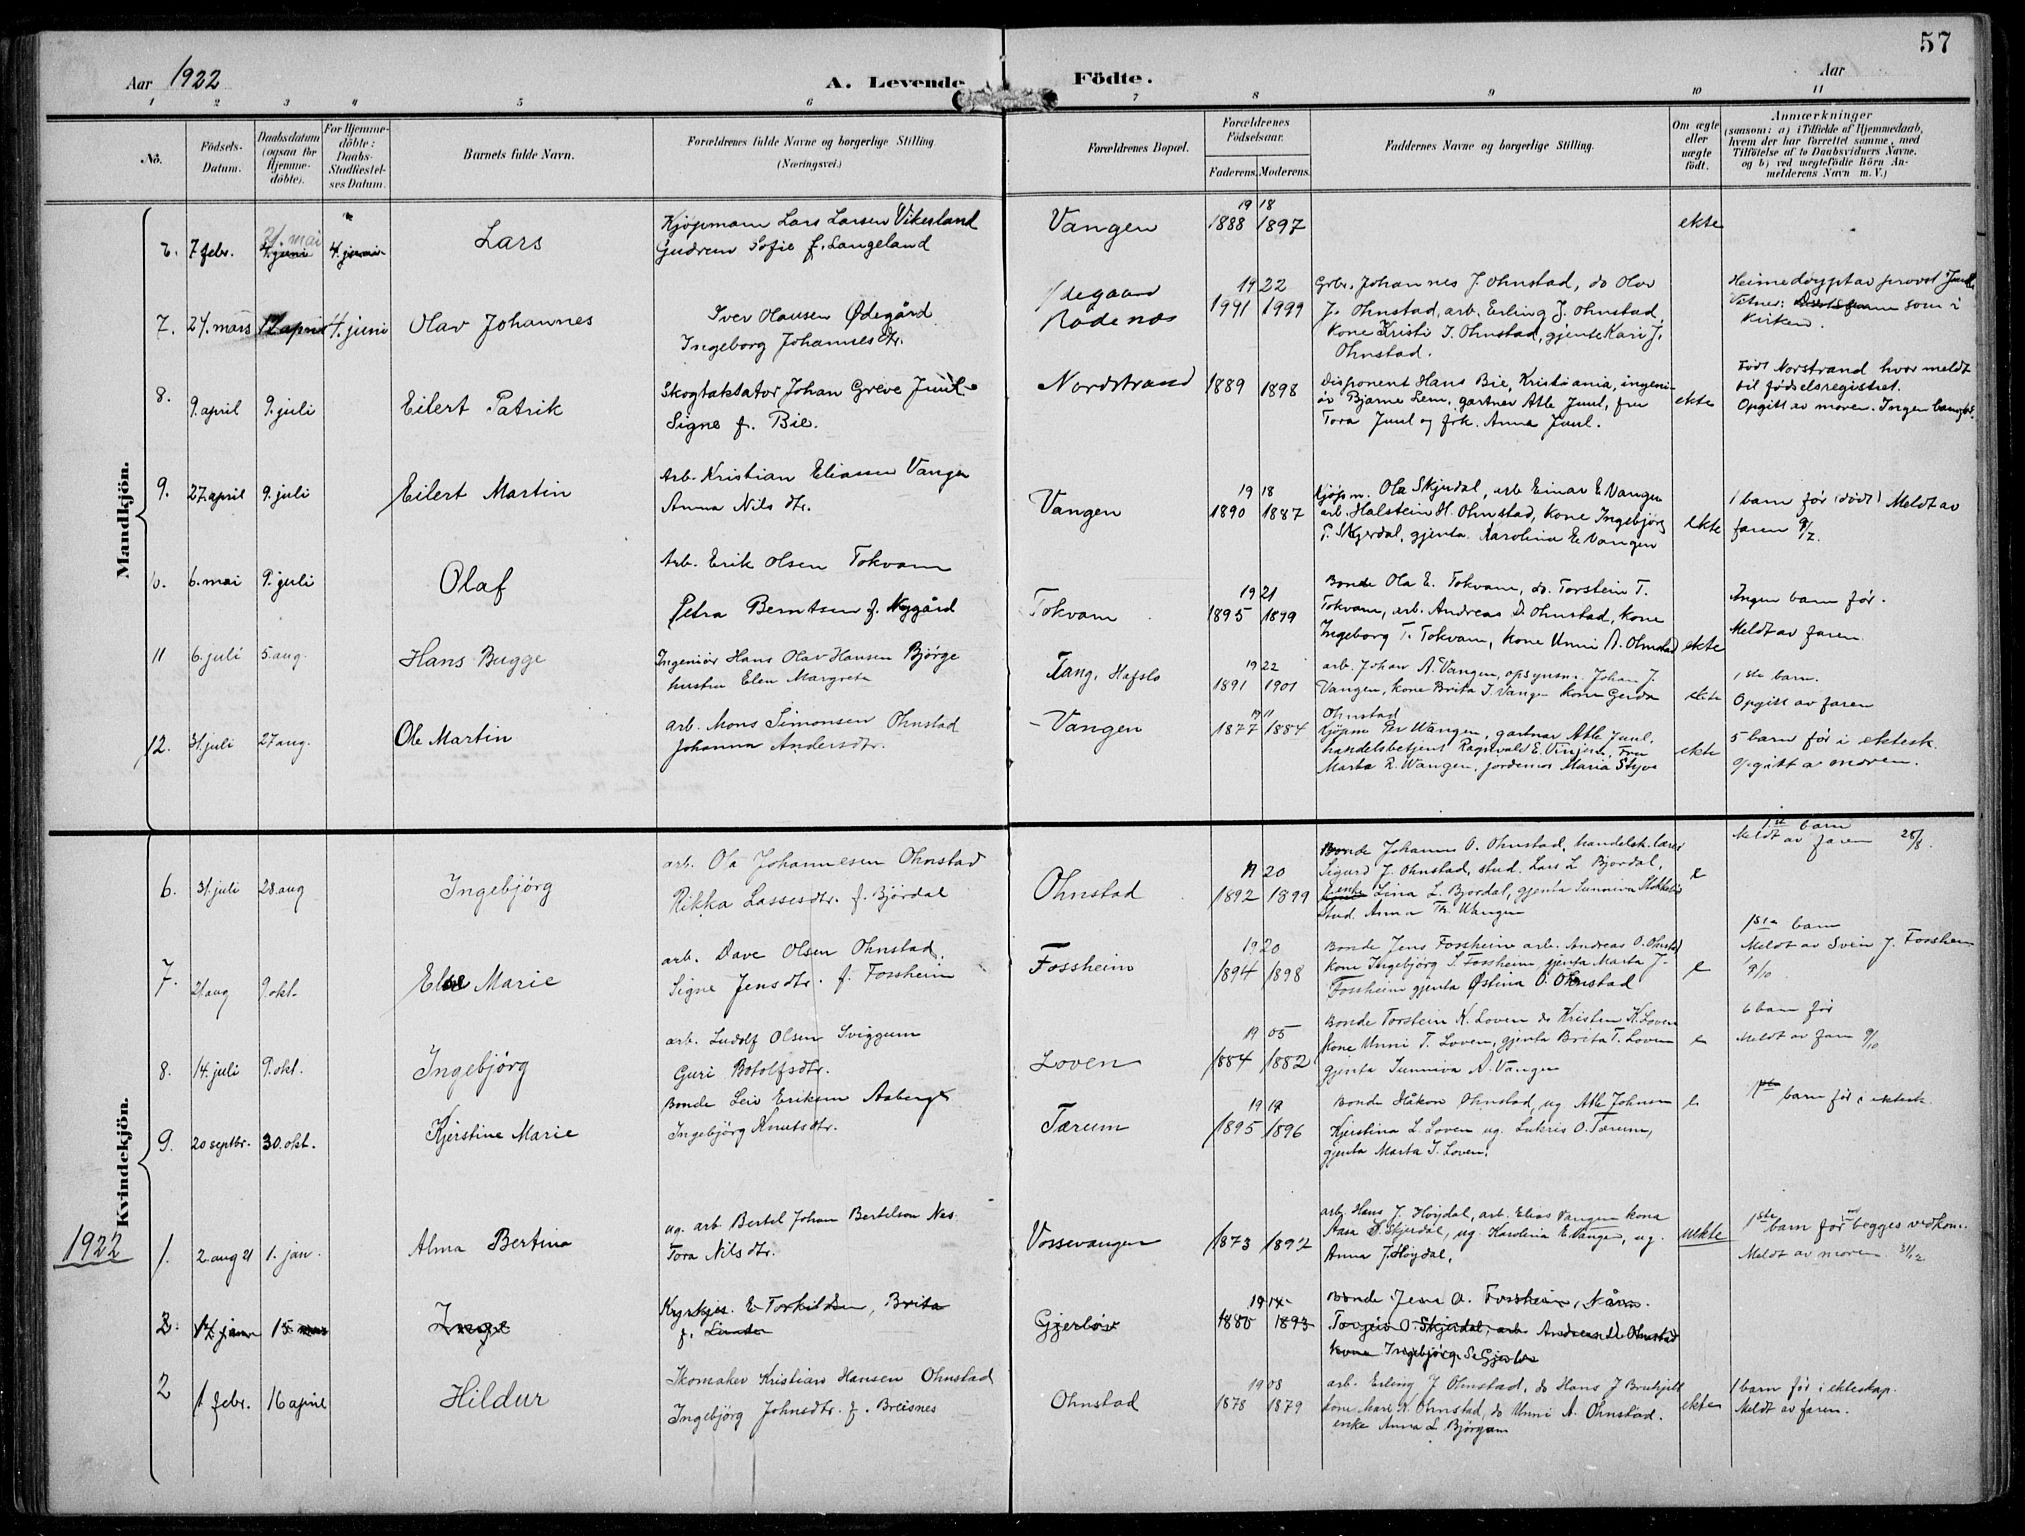 57
Aar 1922
A. Levende Födte.
Aar
1 2 3 4 5 6 7 8 9 10 11
No.
Födsels-Datum.
Daabsdatum (ogsaa for Hjemme-döbte).
For Hjemme-döbte: Daabs-Stadfæstel-ses Datum.
Barnets fulde Navn.
Forældrenes fulde Navne og borgerlige Stilling (Næringsvei.)
Forældrenes Bopæl.
Forældrenes Födselsaar.
Faderens. Moderens.
Faddernes Navne og borgerlige Stilling.
Om ægte eller uægte födt.
Anmærkninger
(saasom: a) i Tilfælde af Hjemmedaab,
hvem der har forrettet samme, med
Tilföielse af to Daabsvidners Navne.
og b) ved uægtefödte Börn An-
melderens Navn m. V.)
Mandkjön.
6. 7 febr. 21. mai 4. juni 4. juni Lars
Kjøpmann Lars Larsen Vikesland
Gudrun Sofie f. Langeland
Vangen
19 18
1888 1897
ekte
7. 24. mars 17 april 4. juni Olav Johannes
Iver Olausen Ødegård
Ingeborg Johannesdtr.
Ødegaard
19 22
1991 1999
Grbr. Johannes J. Ohnstad, do Olav
J. Ohnstad, arb. Erling J. Ohnstad,
kone Kristi I. Ohnstad, gjente Kari J.
Ohnstad.
Heimedøypt av provst Juul
Vitnes: som i
kirken.
8. 9. april 9. juli Eilert Patrik
Skogtaksator Johan Greve Juul
Signe f. Bie.
Nordstrand
1889 1898
Disponent Hans Bie, Kristiania, ingeni-
ør Bjarne Lem, gartner Atle Juul, fru
Tora Juul og frk. Anna Juul.
ekte
Født Norstrand hvor meldt
til fødselsregistret.
Opgitt av moren. Ingen barn før.
9. 27. april 9. juli Eilert Martin
Arb. Kristian Eliassen Vangen
Anna Nils dtr.
Vangen
19 18
1890 1887
kjøpm. Ola Skjerdal, arb Einar E Vangen
arb. Halstein H. Ohnstad, kone Ingebjørg
T. Skjerdal, gjenta Karolina E Vangen
ekte
1 barn før (dødt) Meldt av
faren 9/7.
6. mai 9. juli Olaf
Arb. Erik Olsen Tokvam
Petra Berntsen f. Nygård
Tokvam
19 21
1895 1899
Bonde Ola E. Tokvam, do. Torstein T.
Tokvam, arb. Andreas D. Ohnstad, kone
Ingeborg T. Tokvam, kone Unni A. Ohnstad
ekte
Ingen barn før.
Meldt av faren.
11 6. juli 5. aug. Hans Bugge
Ingeniør Hans Olav Hansen Bjørge
hustru Elen Margrete
Tang, Hafslo
19 22
1891 1901
arb. Johan A. Vangen, opsynsm. Johan J.
Vangen, kone Brita J. Vangen kone Gerda
Ohnstad
ekte
1ste barn.
Opgitt av faren
12. 31. juli 27 aug. Ole Martin
arb. Mons Simonsen Ohnstad
Johanna Andersdtr.
Vangen
19 11
1877 1884
Kjøpm Per Wangen, gartnar Atle Juul.
handelsbetjent Ragnvald E. Vinjum, Fru
Marta R. Wangen, jordemor Maria Styve
ekte
5 barn før i ektesk.
Opgitt a moren.
Kvindekjön.
6. 31. juli 28. aug Ingebjörg
arb. Ola Johannesen Ohnstad
Rikka Lassesdtr. f. Bjørdal
Ohnstad
19 20
1892 1899
Bonde Johannes O. Ohnstad, handelsk.lærer
Sigurd J. Ohnstad, stud. Lars L Bjordal,
gjenta Lina L. Bjordal, gjenta Sunniva
Stud. Anna Th. Wangen
e
1ste barn
Meldt av faren 28/8.
7. 21 aug 9. okt. Else Marie
arb. Dave Olsen Ohnstad
Signe Jensdtr. f. Fossheim
Fossheim
19 20
1894 1898
Bonde Jens Fossheim arb. Andreas O. Ohnstad
kone Ingebjörg S Fossheim, gjenta Marta J.
Fossheim gjenta Østina O. Ohnstad
e
1ste barn
Meldt av Svein J. Fossheim
9/10
8. 14. juli 9. okt. Ingebjörg
arb. Ludolf Olsen Sviggum
Guri Botolfsdtr.
Loven
19 05
1884 1882
Bonde Torstein K. Loven do Kristen K. Loven
kone Unni T. Loven, gjenta Brita T. Loven
gjenta Sunniva A. Vangen
e
6 barn før
Meldt av faren 9/10
9. 20 septbr. 30. okt. Kjerstine Marie
Bonde Leiv Eriksen Aaberge
Ingebjörg Knutsdtr.
Tærum
19 19
1895 1896
Bonde Håkon Ohnstad, ug Atle Johnsen
Kjerstina L. Loven ug. Lukris O. Tærum,
gjenta Marta I. Loven.
e
1 barn før i ektesk.
1922
1. 2. aug 21 1. jan. Alma Bertina
ug. arb Bertel Johan Bertelson Nes
Tora Nils dtr.
Vossevangen
1873 1892
arb Hans J. Høydal, arb. Elias Vangen kona
Aasa S. Skjerdal, ug. Karolina E. Vangen, ug.
Anna J. Høydal.
uekte
1ste barn for begges vedkom.
Meldt av moren. 31/12
2. 14 jan 15 mars Inge
Kyrkjes. E Torkildsen, Brita
f. Linde
Gjerløv
19 14
1880 1893
Bonde Jens O. Fossheim, N
Torgeir O. Skjerdal, arb. Andreas D. Ohnstad
kona Ingebjörg S. Gjerløv
2 1 febr. 16 april Hildur
Skomaker Kristian Hansen Ohnstad
Ingebjörg Johnsdtr. f. Breisnes
Ohnstad
19 08
1878 1879
arb. Erling J Ohnstad, do Hans J
kone Mari K. Ohnstad, do Unni A. Ohnstad.
enke Anna L Björgum
ekte
1 barn før i ekteskap.
Meldt av faren.